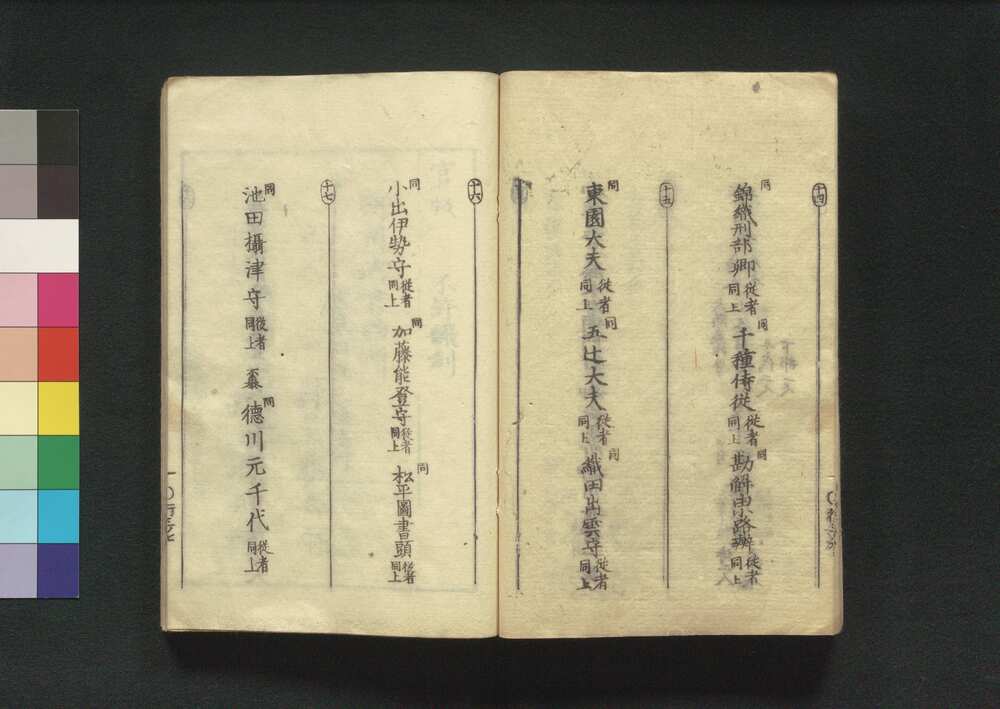 十四
同 錦織刑部卿 従者同上 同 千種侍従 従者同上 同 勘解由小路 従者同上
十五
同 東園大夫 従者同上 同 五辻大夫 従者同上 同 織田出雲守 従者同上
十六
同 小出伊勢守 従者同上 同 加藤能登守 従者同上 同 松平圖書頭 従者同上
十七
同 池田攝津守 従者同上 同 德川元千代 従者同上